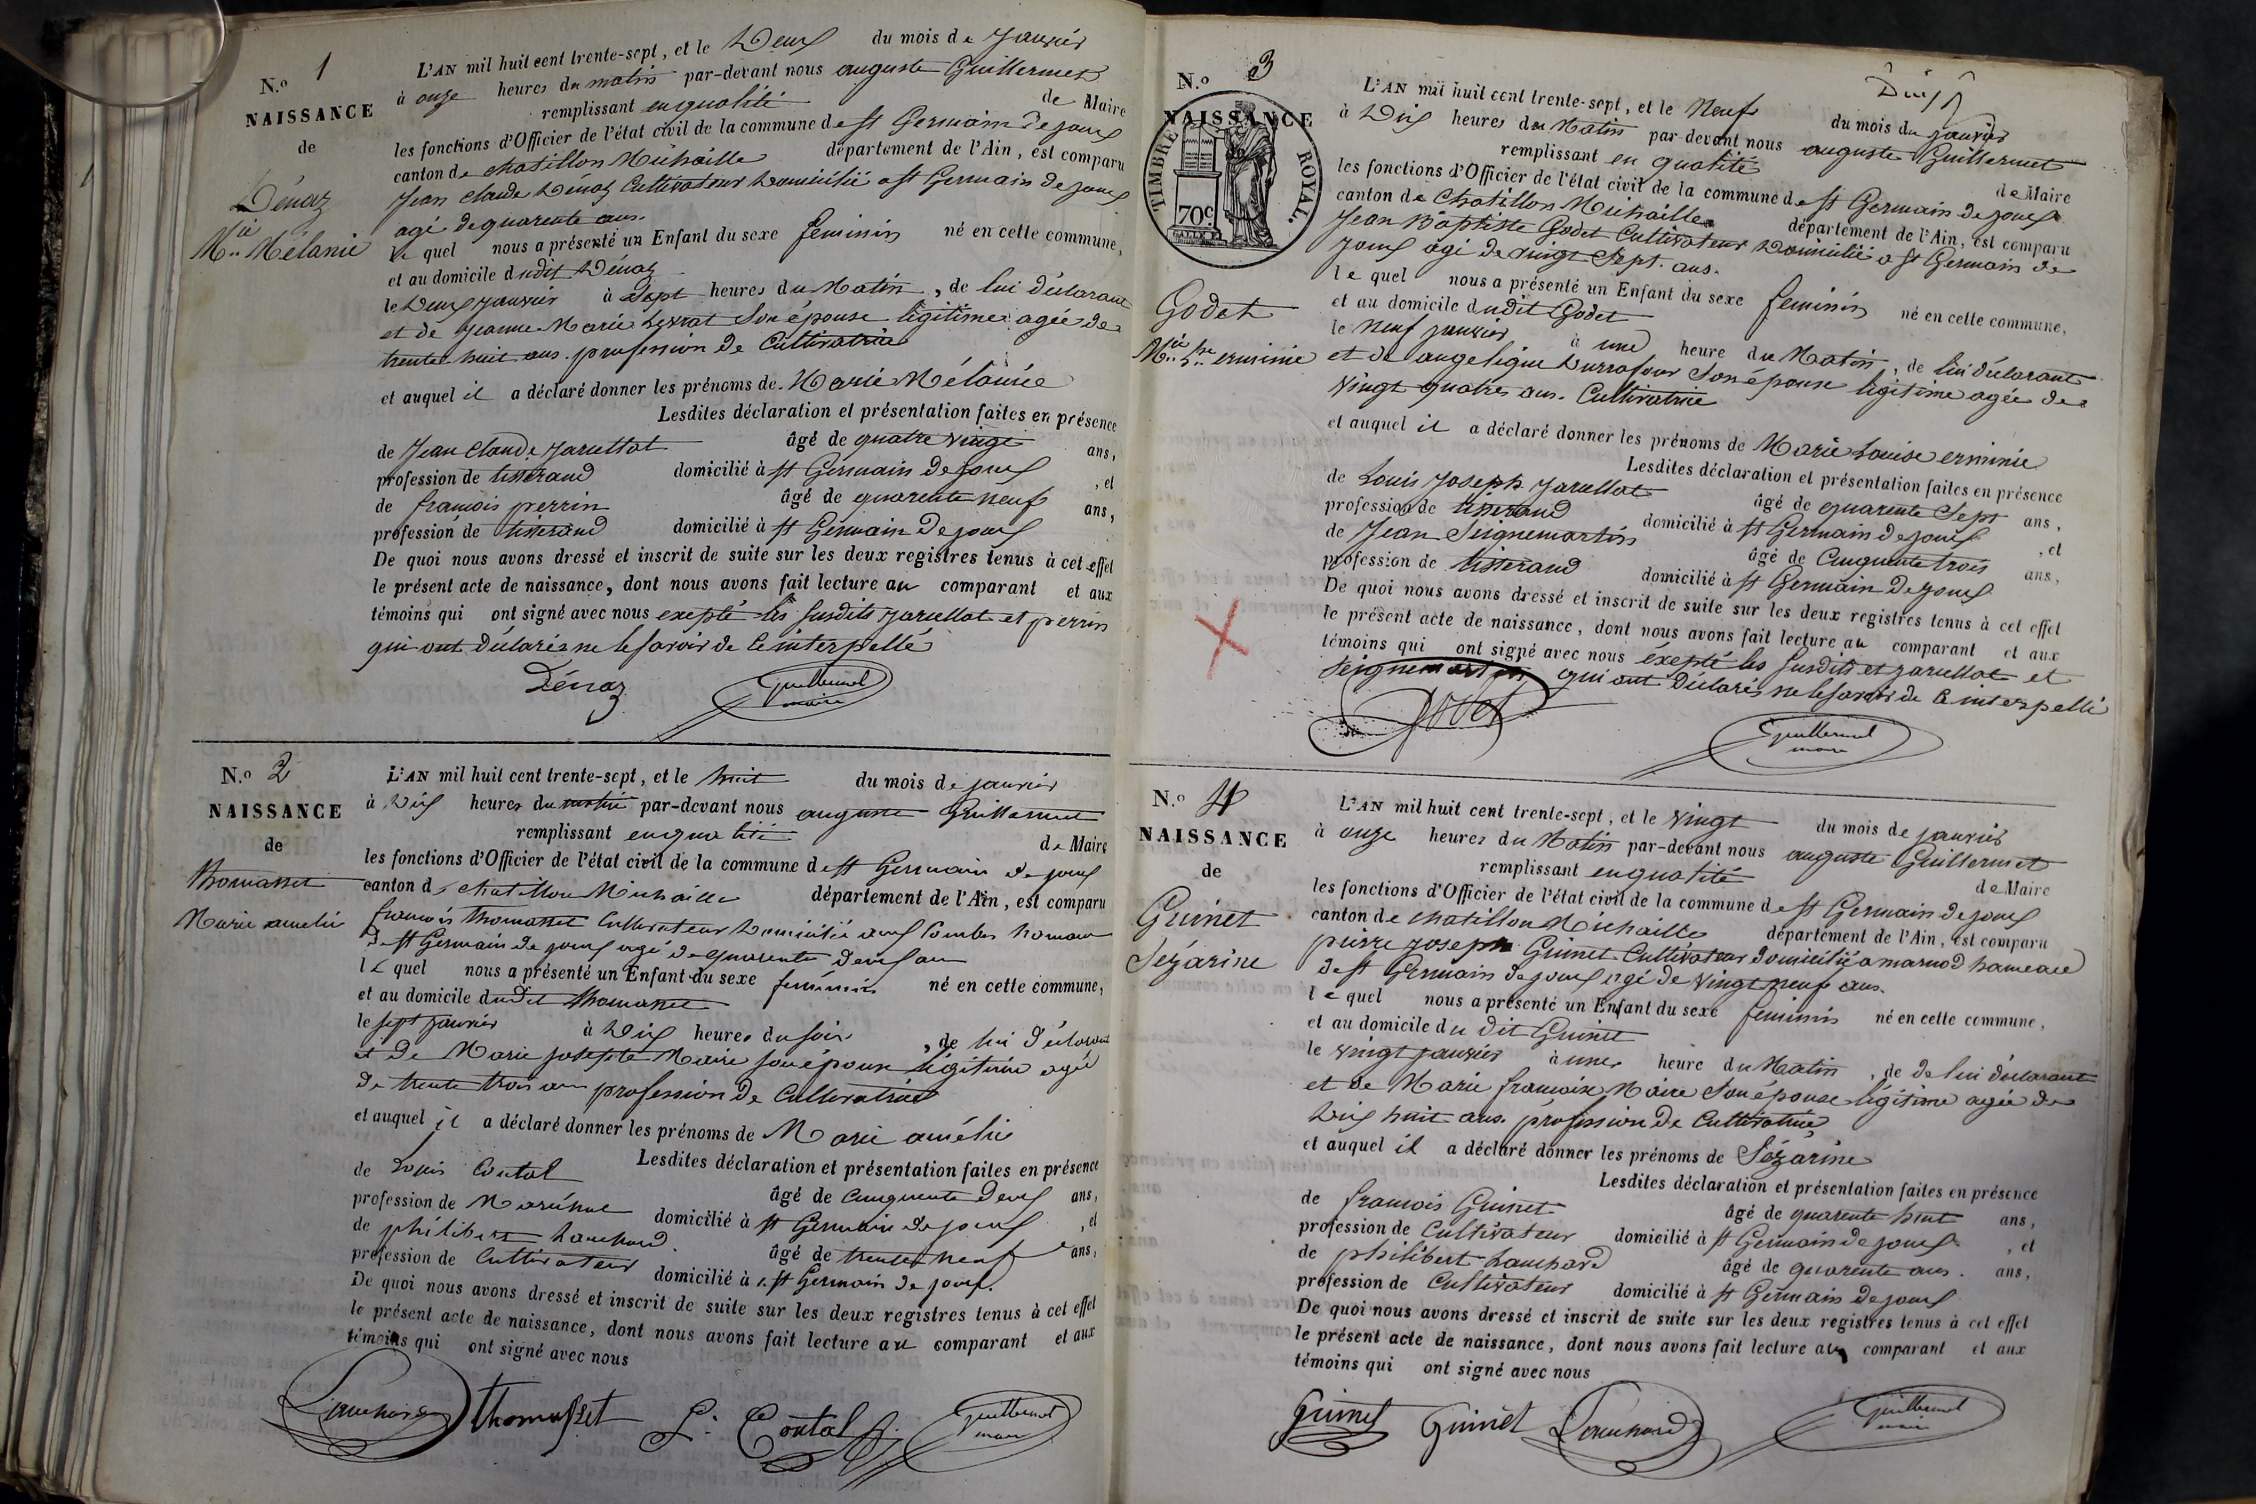 N.º 1
NAISSANCE
de
Dénaz
M.ie Mélanie
L'AN mil huit cent trente-sept, et le Deux du mois de Janvier
à onze heures du matin par-devant nous auguste Guillermet
remplissant en qualité de Maire
les fonctions d'Officier de l'état civil de la commune de St Germain de joux
canton de chatillon Michaille département de l'Ain, est comparu
Jean Claude Dénaz Cultivateur Domicilié a St Germain de joux
agé de quarente ans.
le quel nous a présenté un Enfant du sexe feminin né en cette commune,
et au domicile dudit Dénaz
le Deux janvier à Sept heures du Matin, de lui déclarant
et de jeanne Marie Son épouse légitime agée de
trente huit ans. profession de Cultivatrice
et auquel il a déclaré donner les prénoms de Marie Mélanie
Lesdites déclaration et présentation faites en présence
de Jean Claude Jarullot âgé de quatre vingt ans,
profession de tisserand domicilié à St Germain de joux, et
de francois perrin âgé de quarente neuf ans,
profession de tisserand domicilié à St Germain de joux
De quoi nous avons dressé et inscrit de suite sur les deux registres tenus à cet effet
le présent acte de naissance, dont nous avons fait lecture au comparant et aux
témoins qui ont signé avec nous exepté les susdits jarullot et perrin
qui ont déclarés ne le savoir de ce interpellé
Dénaz Guillermet
maire
N.º 2
NAISSANCE
de
thomasset
Marie amelie
L'AN mil huit cent trente-sept, et le huit du mois de janvier
à Dix heures du matin par-devant nous auguste Guillermet
remplissant en qualité de Maire
les fonctions d'Officier de l'état civil de la commune de St Germain de joux
canton de chatillon Michaille département de l'Ain, est comparu
francois thomasset Cultivateur Domicilié aux Combes hameau
de St Germain de joux agé de quarente deux an
le quel nous a présenté un Enfant du sexe féminin né en cette commune,
et au domicile dudit thomasset
le sept janvier à Dix heures du soir, de lui déclarant
et de Marie josephte Maire son épouse légitime agée
de trente trois an profession de Cultivatrice
et auquel il a déclaré donner les prénoms de Marie amélie
Lesdites déclaration et présentation faites en présence
de Louis Coutal âgé de Cinquente deux ans,
profession de Maréchal domicilié à St Germain de joux, et
de philibert Lanchard âgé de trente neuf ans,
profession de Cultivateur domicilié à St Germain de joux.
De quoi nous avons dressé et inscrit de suite sur les deux registres tenus à cet effet
le présent acte de naissance, dont nous avons fait lecture au comparant et aux
témoins qui ont signé avec nous
Lanchard Thomasset L. Coutal Guillermet
maire
N.º 3
NAISSANCE
TIMBRE ROYAL.
70c
Godet
M.ie L.se erminie
L'AN mil huit cent trente-sept, et le Neuf du mois du janvier
à Dix heures du Matin par devant nous auguste Guillermet
remplissant en qualité de Maire
les fonctions d'Officier de l'état civil de la commune de St Germain de joux
canton de Chatillon Michaille département de l'Ain, est comparu
Jean Baptiste Godet Cultivateur Domicilié a St Germain de
joux agé de vingt Sept ans.
le quel nous a présenté un Enfant du sexe feminin né en cette commune,
et au domicile dudit Godet
le Neuf janvier à une heure du Matin, de lui déclarant
et de angelique Durrafour Son épouse légitime agée de
vingt quatre ans. Cultivatrice
et auquel il a déclaré donner les prénoms de Marie Louise erminie
Lesdites déclaration et présentation faites en présence
de Louis Joseph Jarullot âgé de quarente Sept ans,
profession de tisserand domicilié à St Germain de joux, et
de Jean Seignemartin âgé de Cinquente trois ans,
profession de tisserand domicilié à St Germain de joux
De quoi nous avons dressé et inscrit de suite sur les deux registres tenus à cet effet
le présent acte de naissance, dont nous avons fait lecture au comparant et aux
témoins qui ont signé avec nous éxepté les susdits et jarullot et
Seignemartin qui ont déclarés ne le savoir de ce interpellé
Godet Guillermet
maire
N.º 4
NAISSANCE
de
Guinet
Sézarine
L'AN mil huit cent trente-sept, et le vingt du mois de janvier
à onze heures du Matin par-devant nous auguste Guillermet
remplissant en qualité de Maire
les fonctions d'Officier de l'état civil de la commune de St Germain de joux
canton de chatillon Michaille département de l'Ain, est comparu
pierre joseph Guinet Cultivateur domicilié a marnod hameau
de St Germain de joux agé de vingt neuf ans.
le quel nous a présenté un Enfant du sexe feminin né en cette commune,
et au domicile du dit Guinet
le vingt janvier à une heure du Matin, de de lui déclarant
et de Marie francoise Maire Son épouse légitime agée de
Dix huit ans. profession de Cultivatrice
et auquel il a déclaré donner les prénoms de Sézarine
Lesdites déclaration et présentation faites en présence
de francois Guinet âgé de quarente huit ans,
profession de Cultivateur domicilié à St Germain de joux, et
de philibert Lanchard âgé de quarente ans. ans,
profession de Cultivateur domicilié à St Germain de joux
De quoi nous avons dressé et inscrit de suite sur les deux registres tenus à cet effet
le présent acte de naissance, dont nous avons fait lecture au comparant et aux
témoins qui ont signé avec nous
Guinet Guinet Lanchard Guillermet
maire